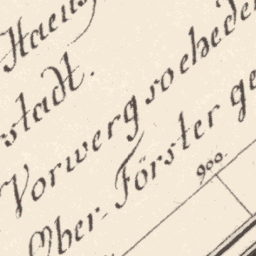 Haeus
stadt.
Vorwerg so ehede
Ober-Förster ge
900.